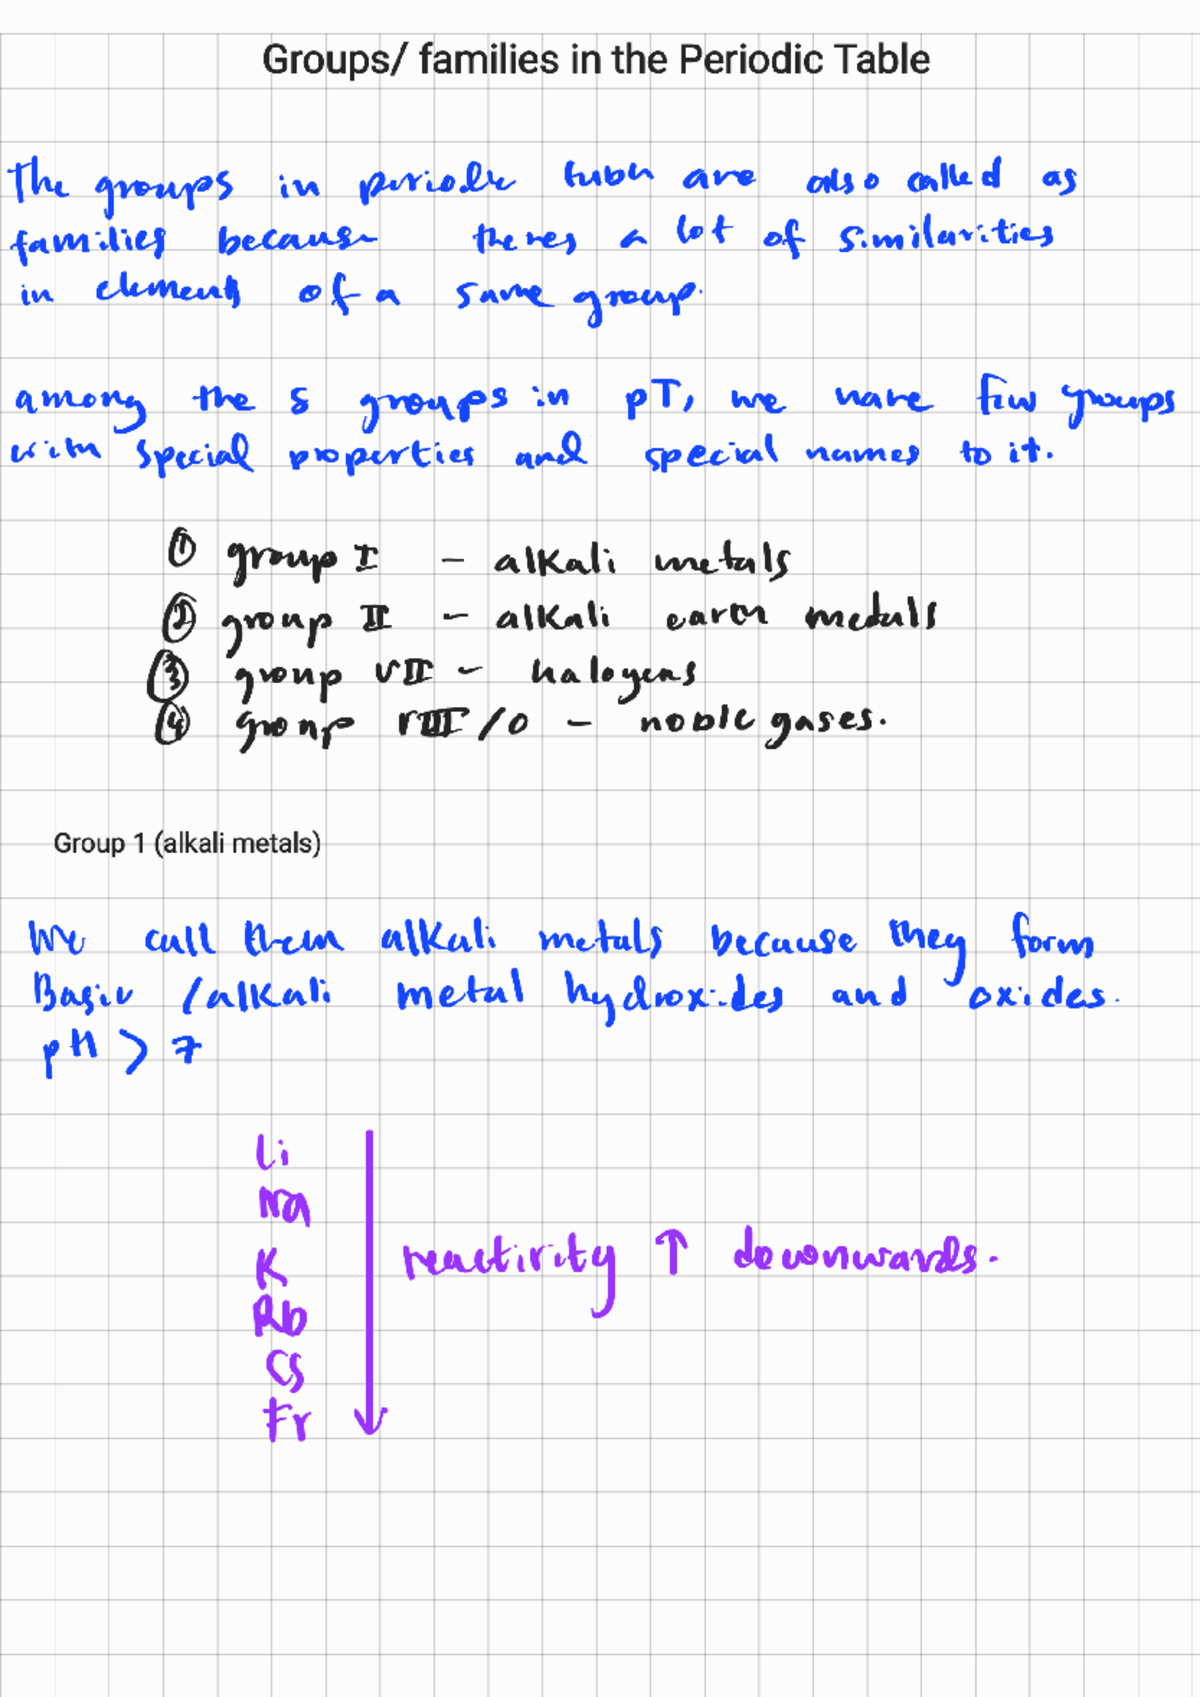 Groups/ families in the Periodic Table
The groups in periodic table are also called as
families because theres a lot of similarities
in elements of a same group.
among the 8 groups in pT, we have few groups
with special properties and special names to it.
① group I - alkali metals
② group II - alkali earth metals
③ group VII - halogens
④ group VIII/0 - noble gases.
Group 1 (alkali metals)
We call them alkali metals because they form
Basic /alkali metal hydroxides and oxides.
pH > 7
Li
Na
K
reactivity ↑ downwards.
Rb
Cs
Fr